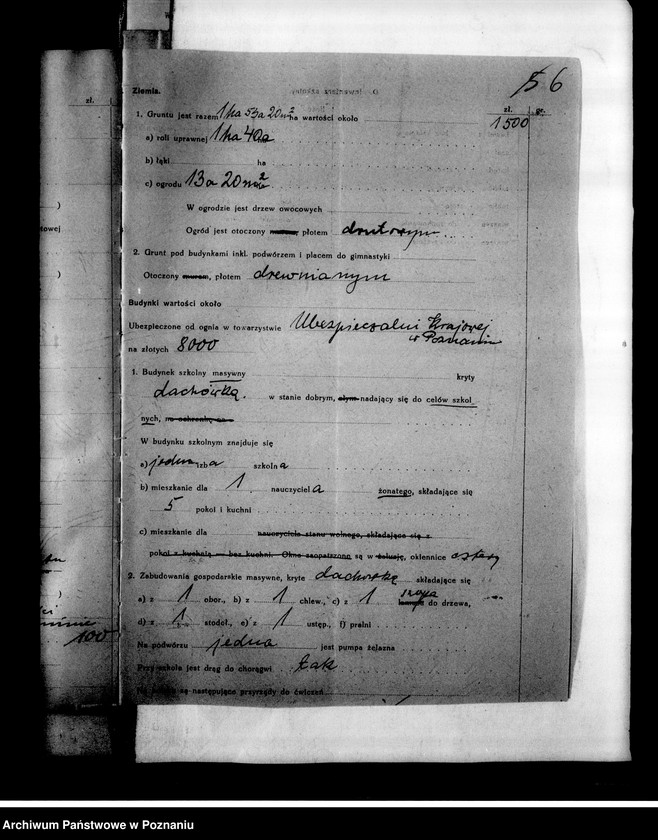 zł.
)
towej
)
100
6
Ziemia.
zł. gr.
1. Gruntu jest razem 1 ha 53 a 20 m² ha wartości około 1500
a) roli uprawnej 1 ha 40 a
b) łąki ha
c) ogrodu 13 a 20 m²
W ogrodzie jest drzew owocowych
Ogród jest otoczony murem, płotem drutowym
2. Grunt pod budynkami inkl. podwórzem i placem do gimnastyki
Otoczony murem, płotem drewnianym
Budynki wartości około
Ubezpieczone od ognia w towarzystwie Ubezpieczalni Krajowej
w Poznaniu
na złotych 8000
1. Budynek szkolny masywny kryty
dachówką. w stanie dobrym, złym nadający się do celów szkol
nych,
W budynku szkolnym znajduje się
a) jedna izba szkolna
b) mieszkanie dla 1 nauczyciela żonatego, składające się
5 pokoi i kuchni
c) mieszkanie dla nauczyciela stanu wolnego, składające się z
pokoi z kuchnią — bez kuchni. Okna zaopatrzone są w żaluzje, okiennice cztery
2. Zabudowania gospodarskie masywne, kryte dachówką składające się
a) z 1 obor., b) z 1 chlew., c) z 1 szopa do drzewa,
d) z 1 stodoł., e) z 1 ustęp., f) pralni
Na podwórzu jedna jest pumpa żelazna
Przy szkole jest drąg do chorągwi tak
Na są następujące przyrządy do ćwiczeń
Archiwum Państwowe w Poznaniu